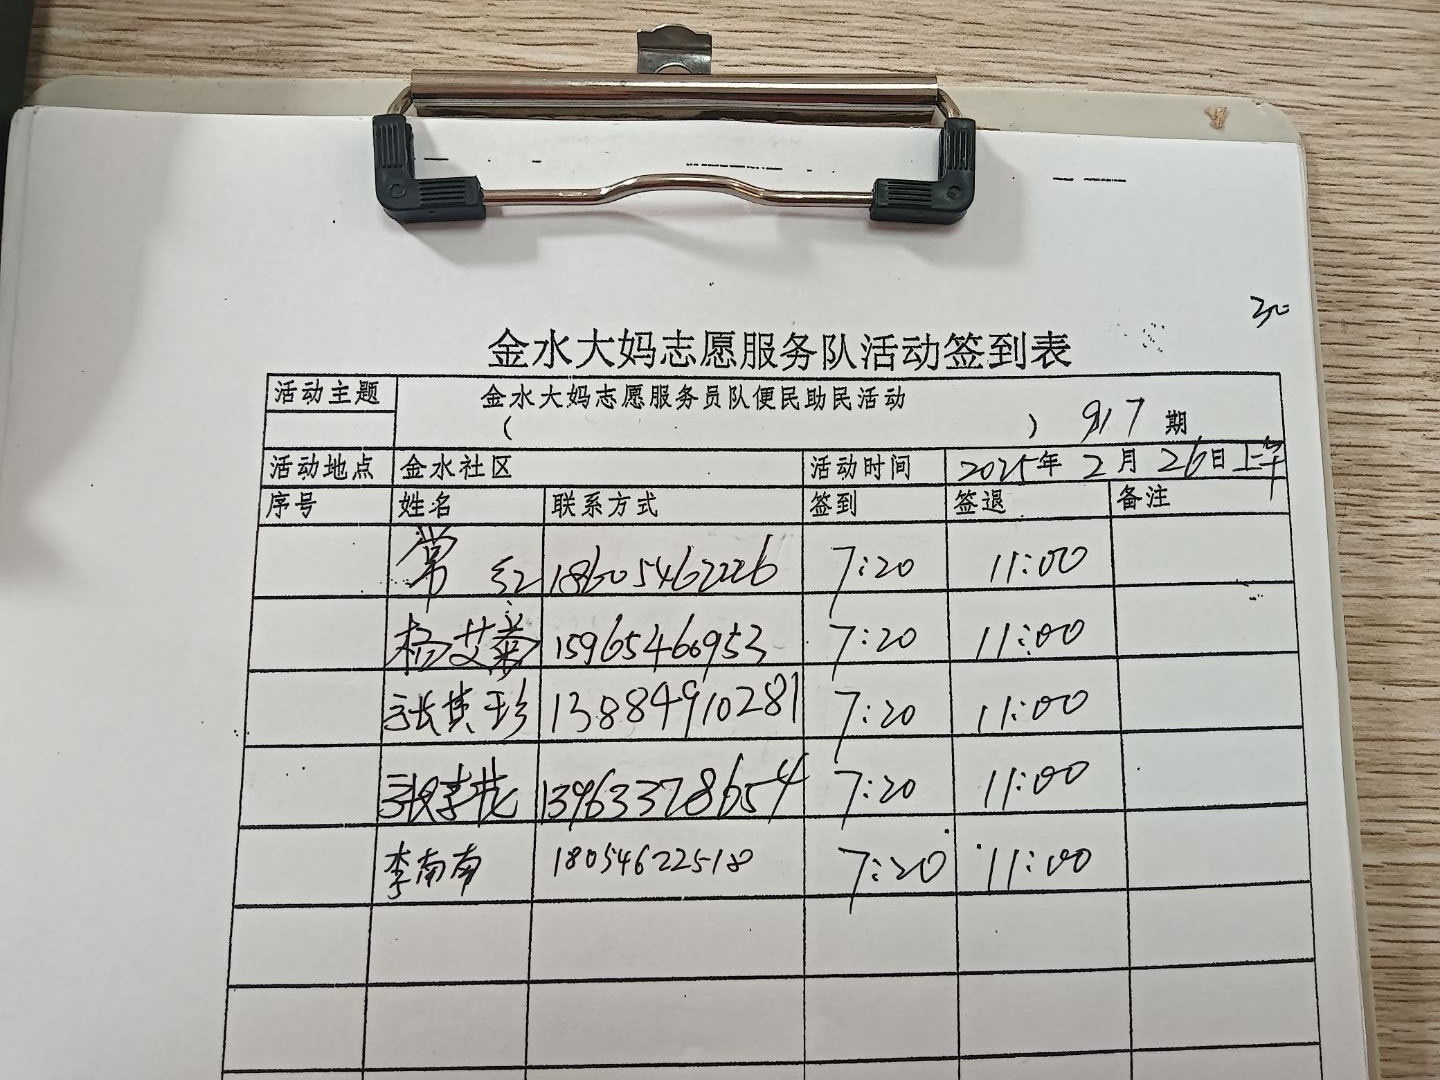 金水大妈志愿服务队活动签到表
活动主题 金水大妈志愿服务员队便民助民活动
( ) 917 期
活动地点 金水社区 活动时间 2025年 2月 26日上午
序号 姓名 联系方式 签到 签退 备注
常红 18605462226 7:20 11:00
杨艾 15965460953 7:20 11:00
张其珍 13884910281 7:20 11:00
张 13963378654 7:20 11:00
李南南 18054622518 7:20 11:00